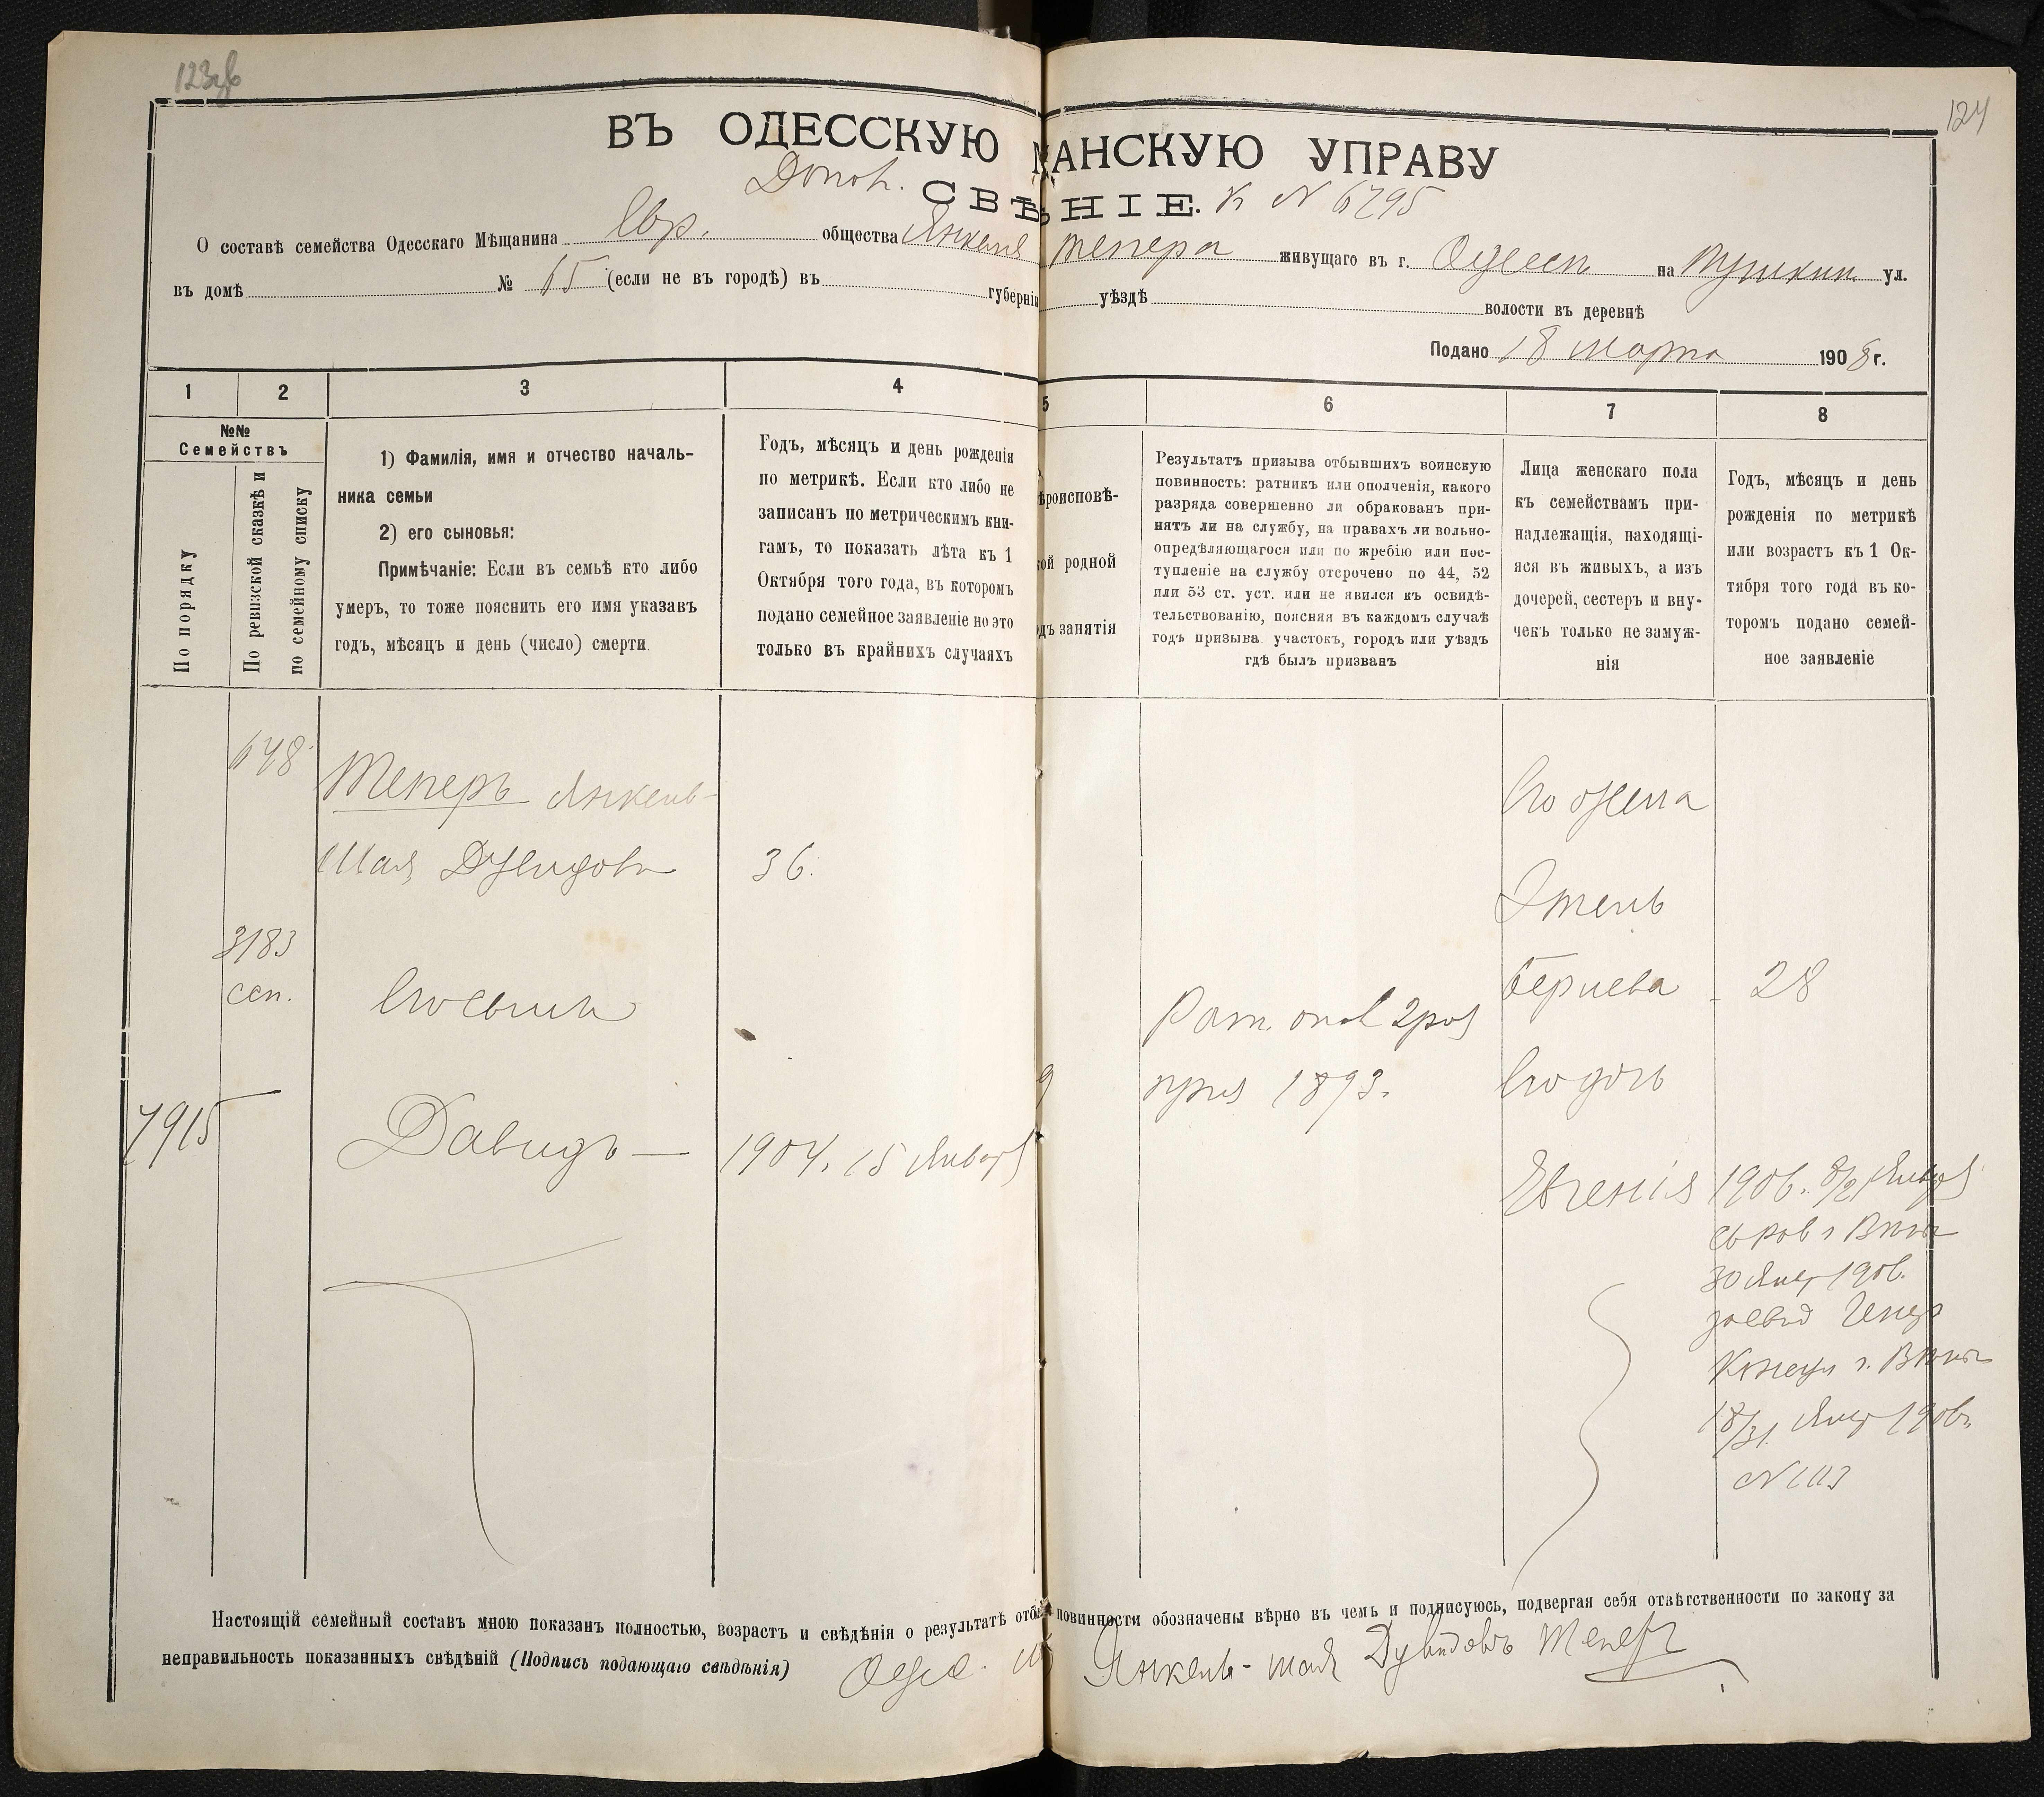 124
ВЪ ОДЕССКУЮ АНСКУЮ УПРАВУ
Допол. СВѢ НІЕ. К N 6295
О составѣ семейства Одесскаго Мѣщанина Евр. общества Янкеля Тепера живущаго въ г. Одессѣ на Пушкин. ул.
въ домѣ № 65 (если не въ городѣ) въ губерніи уѣздѣ волости въ деревнѣ
Подано 18 марта 1908 г.
1 2 3 4 5 6 7 8
№№
Семействъ
По порядку
По ревизской сказкѣ и
по семейному списку
1) Фамилія, имя и отчество началь-
ника семьи
2) его сыновья:
Примѣчаніе: Если въ семьѣ кто либо
умеръ, то тоже пояснить его имя указавъ
годъ, мѣсяцъ и день (число) смерти.
Годъ, мѣсяцъ и день рожденія
по метрикѣ. Если кто либо не
записанъ по метрическимъ кни-
гамъ, то показать лѣта къ 1
Октября того года, въ которомъ
подано семейное заявленіе но это
только въ крайнихъ случаяхъ
ѣроисповѣ-
ой родной
дъ занятія
Результатъ призыва отбывшихъ воинскую
повинность: ратникъ или ополченія, какого
разряда совершенно ли обракованъ при-
нятъ ли на службу, на правахъ ли вольно-
опредѣляющагося или по жребію или пос-
тупленіе на службу отсрочено по 44, 52
или 53 ст. уст. или не явился къ освидѣ-
тельствованію, поясняя въ каждомъ случаѣ
годъ призыва участокъ, городъ или уѣздъ
гдѣ былъ призванъ
Лица женскаго пола
къ семействамъ при-
надлежащія, находящі-
яся въ живыхъ, а изъ
дочерей, сестеръ и вну-
чекъ только не замуж-
нія
Годъ, мѣсяцъ и день
рожденія по метрикѣ
или возрастъ къ 1 Ок-
тября того года въ ко-
торомъ подано семей-
ное заявленіе
648
Теперъ Янкель-
Шая Дувидовъ 36.
3183
сем.
Его сынъ
7915 Давидъ — 1904. 15 Января
Рат. опол 2 раз
приз 1893.
Его жена
Этель
Берцева 28
Его дочь
Евгенія 1906. 8/21 Января
30 Янв 1906.
Генер
Консул г. Вѣнѣ
18/31 Янв 1906
N 113
Настоящій семейный составъ мною показанъ полностью, возрастъ и свѣдѣнія о результатѣ отбы повинности обозначены вѣрно въ чемъ и подписуюсь, подвергая себя отвѣтственности по закону за
неправильность показанныхъ свѣдѣній (Подпись подающаго свѣдѣнія) Одес. Янкель-Шая Дувидовъ Теперъ